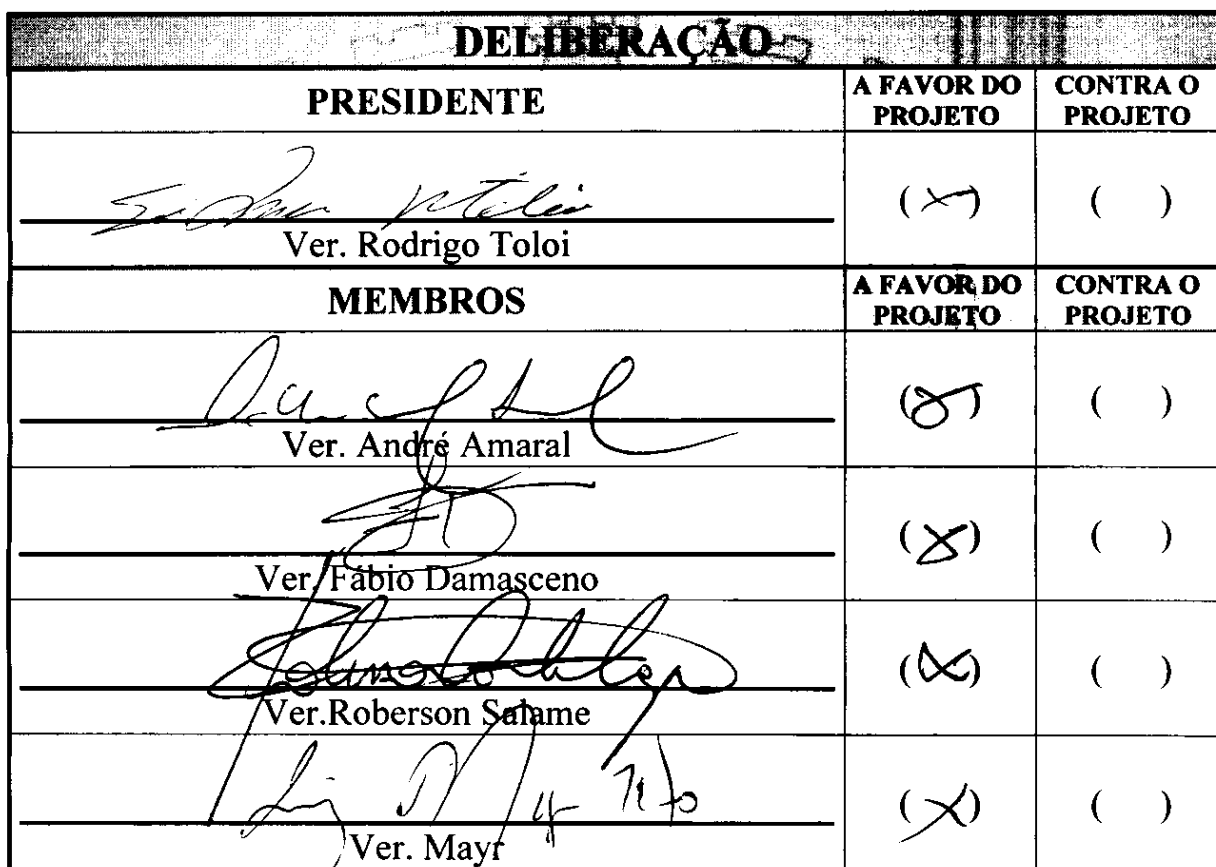 DELIBERAÇÃO
PRESIDENTE
A FAVOR DO PROJETO
CONTRA O PROJETO
(X)
( )
Ver. Rodrigo Toloi
MEMBROS
A FAVOR DO PROJETO
CONTRA O PROJETO
(X)
( )
Ver. André Amaral
(X)
( )
Ver. Fábio Damasceno
(X)
( )
Ver.Roberson Salame
(X)
( )
Ver. Mayr